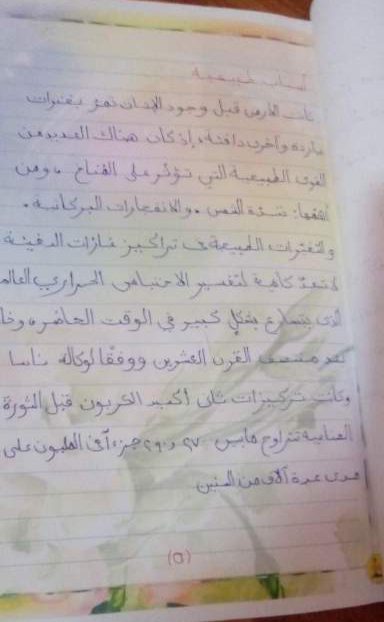 أسباب طبيعية
كانت الأرض قبل وجود الإنسان تمر بفترات
باردة وأخرى دافئة، إذ كان هناك العديد من
القوى الطبيعية التي تؤثر على المناخ، ومن
أهمها: شدة الشمس، والانفجارات البركانية،
والتغيرات الطبيعية في تراكيز غازات الدفيئة
لا تعد كافية لتفسير الاحتباس الحراري العالم
الذي يتسارع بشكل كبير في الوقت الحاضر، وخا
منتصف القرن العشرين ووفقا لوكالة ناسا
وكانت تركيزات ثاني أكسيد الكربون قبل الثورة
الصناعية تتراوح مابين ٢٧٠ و٢٩٠ جزء في المليون على
مدى عدة آلاف من السنين
(٥)